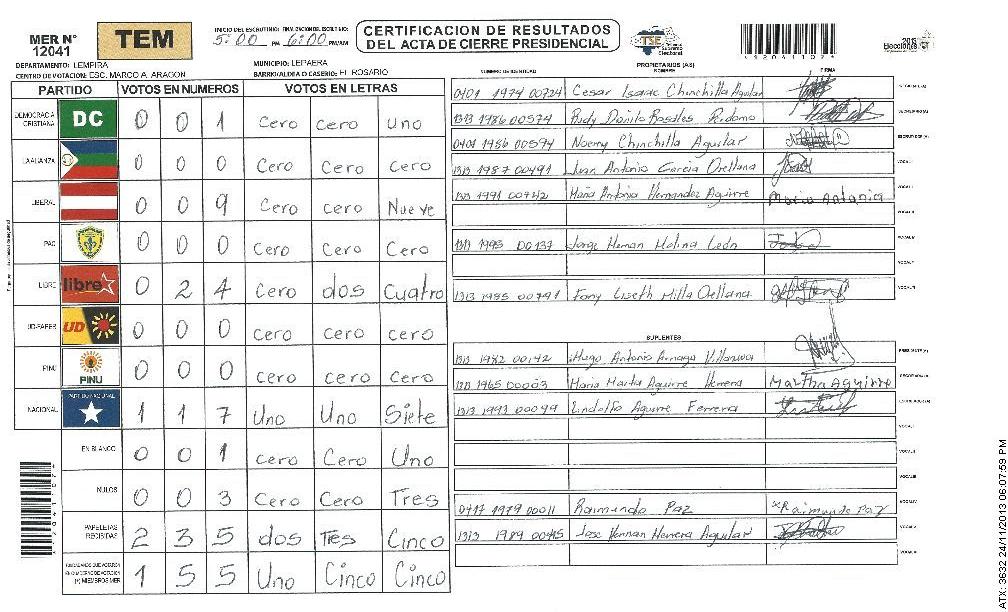 MER Nº 12041
TEM
INICIO DEL ESCRUTINIO: 5:00 PM
6:00 PM/AM
CERTIFICACION DE RESULTADOS
DEL ACTA DE CIERRE PRESIDENCIAL
TSE
2013
Elecciones
DEPARTAMENTO: LEMPIRA
MUNICIPIO: LEPAERA
CENTRO DE VOTACION: ESC. MARCO A. ARAGON
BARRIO/ALDEA O CASERIO: EL ROSARIO
PARTIDO VOTOS EN NUMEROS VOTOS EN LETRAS
DEMOCRACIA CRISTIANA DC 0 0 1 Cero Cero Uno
LA ALIANZA 0 0 0 Cero Cero Cero
LIBERAL 0 0 9 Cero Cero Nueve
PAC 0 0 0 Cero Cero Cero
LIBRE libre 0 2 4 Cero dos Cuatro
UD-FAPER UD 0 0 0 Cero Cero Cero
PINU PINU 0 0 0 Cero Cero Cero
NACIONAL PARTIDO NACIONAL 1 1 7 Uno Uno Siete
EN BLANCO 0 0 1 Cero Cero Uno
NULOS 0 0 3 Cero Cero Tres
PAPELETAS RECIBIDAS 2 3 5 dos Tres Cinco
1 5 5 Uno Cinco Cinco
PROPIETARIOS (AS)
NUMERO DE IDENTIDAD NOMBRE FIRMA
0401 1974 00724 Cesar Isaac Chinchilla Aguilar
1313 1986 00574 Rudy Danilo Rosales
0401 1986 00594 Noemy Chinchilla Aguilar
1313 1987 00491 Juan Antonio Garcia Orellana
1313 1991 00742 Maria Antonia Hernandez Aguirre Maria Antonia
1313 1995 00137 Jorge Hernan Molina León
1313 1985 00791 Fany Liseth Milla Orellana
SUPLENTES
1313 1982 00142 Hugo Antonio Villanueva
1313 1965 00003 Maria Marta Aguirre Herrera Martha Aguirre
1313 1993 00099 Lindolfo Aguirre Ferrera
0417 1979 00011 Raimundo Paz Raimundo Paz
1313 1989 00445 Jose Hernan Herrera Aguilar
120411074
ATX: 3632 24/11/2013 06:07:59 PM